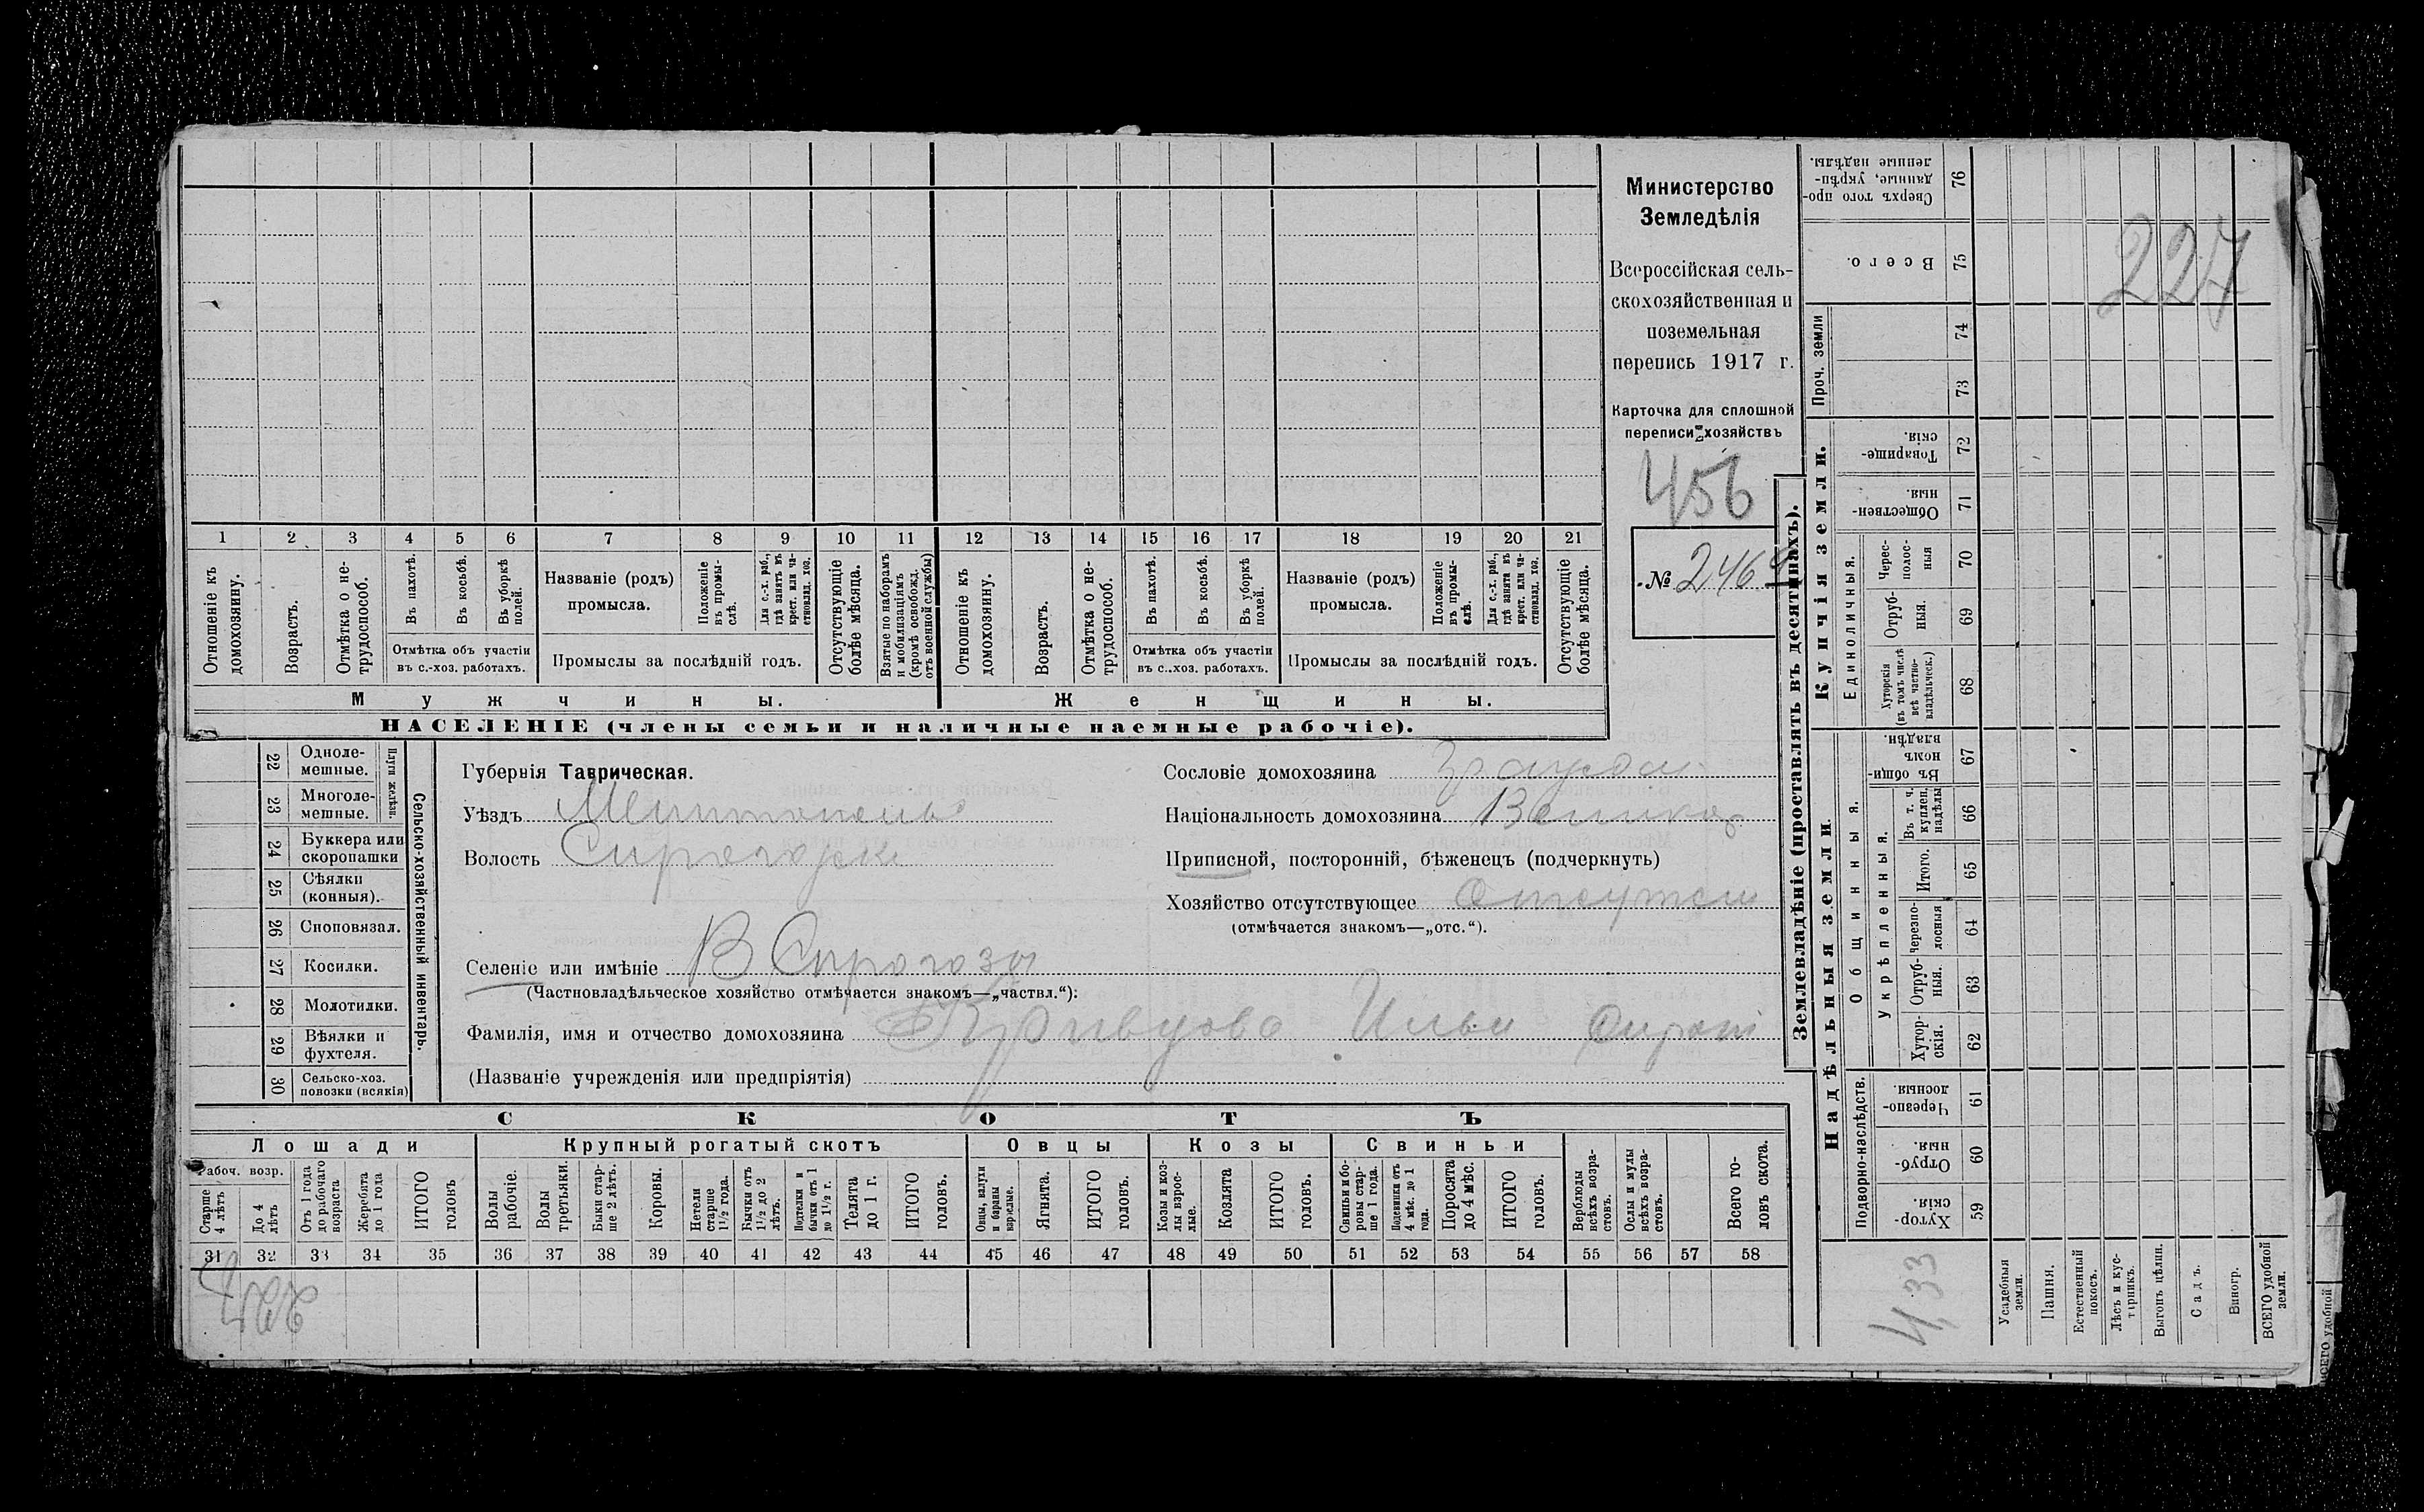 Министерство
Земледѣлія
Всероссійская сель-
скохозяйственная и
поземельная
перепись 1917 г.
Карточка для сплошной
переписи хозяйствъ
456
№ 2469
227
1 2 3 4 5 6 7 8 9 10 11 12 13 14 15 16 17 18 19 20 21
Отношеніе къ домохозяину.
Возрастъ.
Отмѣтка о не-трудоспособ.
Въ пахотѣ.
Въ косьбѣ.
Въ уборкѣ полей.
Отмѣтка объ участіи
въ с.-хоз. работахъ.
Названіе (родъ)
промысла.
Положеніе въ промы-слѣ.
Для с.-х. раб., гдѣ занятъ въ крест. или ча-стновлад. хоз.
Промыслы за послѣдній годъ.
Отсутствующіе болѣе мѣсяца.
Взятые по наборамъ и мобилизаціямъ (кромѣ освобожд. отъ военной службы)
Отношеніе къ домохозяину.
Возрастъ.
Отмѣтка о не-трудоспособ.
Въ пахотѣ.
Въ косьбѣ.
Въ уборкѣ полей.
Отмѣтка объ участіи
въ с.-хоз. работахъ.
Названіе (родъ)
промысла.
Положеніе въ промы-слѣ.
Для с.-х. раб., гдѣ занята въ крест. или ча-стновлад. хоз.
Промыслы за послѣдній годъ.
Отсутствующіе болѣе мѣсяца.
Мужчины. Женщины.
НАСЕЛЕНІЕ (члены семьи и наличные наемные рабочіе).
22 Одноле-мешные.
23 Многоле-мешные.
Плуги желѣзн.
24 Буккера или скоропашки
25 Сѣялки (конныя).
26 Сноповязал.
27 Косилки.
28 Молотилки.
29 Вѣялки и фухтеля.
30 Сельско-хоз. повозки (всякія)
Сельско-хозяйственный инвентарь.
Губернія Таврическая.
Уѣздъ
Волость
Селеніе или имѣніе В Сирогозы
(Частновладѣльческое хозяйство отмѣчается знакомъ—„частвл.“):
Фамилія, имя и отчество домохозяина Кривцово Илья
(Названіе учрежденія или предпріятія)
Сословіе домохозяина
Національность домохозяина Великор
Приписной, посторонній, бѣженецъ (подчеркнуть)
Хозяйство отсутствующее
(отмѣчается знакомъ—„отс.“).
СКОТЪ
Лошади Крупный рогатый скотъ Овцы Козы Свиньи
Рабоч. возр.
Старше 4 лѣтъ
До 4 лѣтъ
Отъ 1 года до рабочаго возраста
Жеребята до 1 года
ИТОГО головъ
Волы рабочіе.
Волы третьяки.
Быки стар-ше 2 лѣтъ.
Коровы.
Нетели старше 1½ года.
Бычки отъ 1½ до 2 лѣтъ.
Подтелки и бычки отъ 1 до 1½ г.
Телята до 1 г.
ИТОГО головъ.
Овцы, валухи и бараны взрослые.
Ягнята.
ИТОГО головъ.
Козы и коз-лы взрос-лые.
Козлята
ИТОГО головъ.
Свиньи и бо-ровы стар-ше 1 года.
Подсвинки отъ 4 мѣс. до 1 года.
Поросята до 4 мѣс.
ИТОГО головъ.
Верблюды всѣхъ возра-стовъ.
Ослы и мулы всѣхъ возра-стовъ.
Всего го-ловъ скота.
31 32 33 34 35 36 37 38 39 40 41 42 43 44 45 46 47 48 49 50 51 52 53 54 55 56 57 58
Землевладѣніе (проставлять въ десятинахъ).
Надѣльныя земли. Купчія земли. Проч. земли
Подворно-наслѣдств. Общинныя. Укрѣпленныя. Единоличныя.
Хутор-скія. 59
Отруб-ныя. 60
Черезпо-лосныя 61
Хутор-скія. 62
Отруб-ныя. 63
Черезпо-лосныя 64
Итого. 65
Въ т. ч. куплен. надѣлы 66
Въ общи-номъ владѣн. 67
Хуторскія (въ томъ числѣ всѣ частно-владѣльческ.) 68
Отруб-ныя. 69
Черес-полос-ныя 70
Обществен-ныя. 71
Товарище-скія. 72
73
74
Всего. 75
Сверхъ того про-данные, укрѣп-ленные надѣлы. 76
4,33
Усадебныя земли.
Пашня.
Естественный покосъ.
Лѣсъ и кус-тарникъ.
Выгонъ цѣлин.
Садъ.
Виногр.
ВСЕГО удобной земли.
ВСЕГО удобной